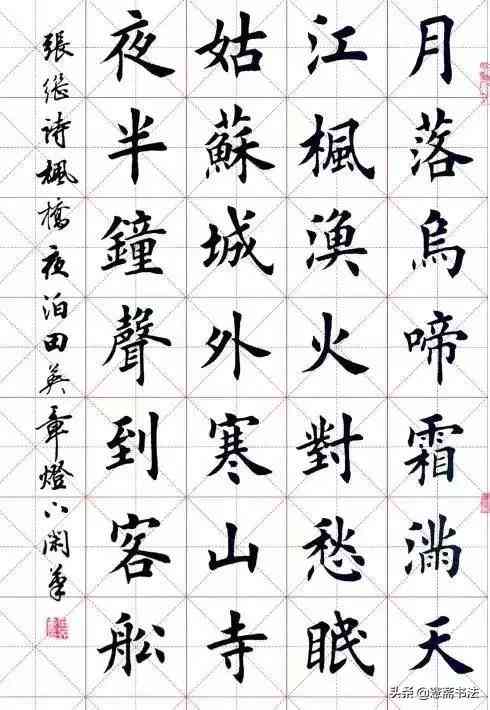 月落烏啼霜滿天
江楓漁火對愁眠
姑蘇城外寒山寺
夜半鐘聲到客船
張繼詩楓橋夜泊田英章燈下閑筆
头条 @憲斋书法